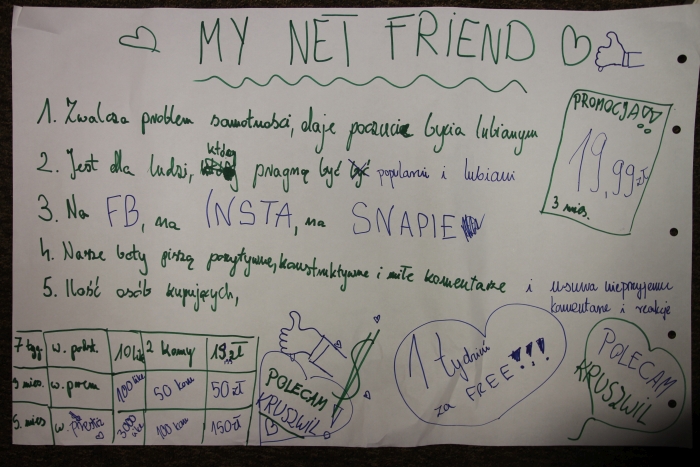 MY NET FRIEND
PROMOCJA
19,99 zł
3 mies.
1. Zwalcza problem samotności, daje poczucie bycia lubianym
2. Jest dla ludzi, którzy pragną być popularni i lubiani
3. Na FB, na INSTA, na SNAPIE
4. Nasze boty piszą pozytywne, konstruktywne i miłe komentarze i usuwa nieprzyjemne
komentarze i reakcje
5. Ilość osób kupujących,
w. podst. 2 komy 19 zł
w. 100 50 kom 50 zł
5. mies w. 3000 100 kom 150 zł
POLECAM
KRUSZWIL
1 tydzień
za FREE!!!
POLECAM
KRUSZWIL